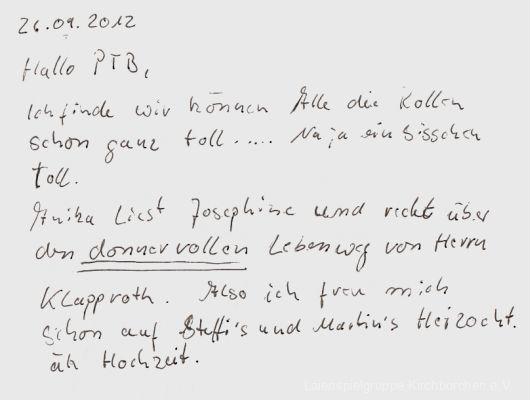 26.09.2012
Hallo PTB,
Ich finde wir können Alle die Rollen
schon ganz toll..... Naja ein bisschen
toll.
Anika Liest Josephine und redet über
den donnervollen Lebensweg von Herrn
Klapproth. Also ich freu mich
schon auf Steffi's und Martin's Heizocht.
äh Hochzeit.
Laienspielgruppe Kirchborchen e.V.